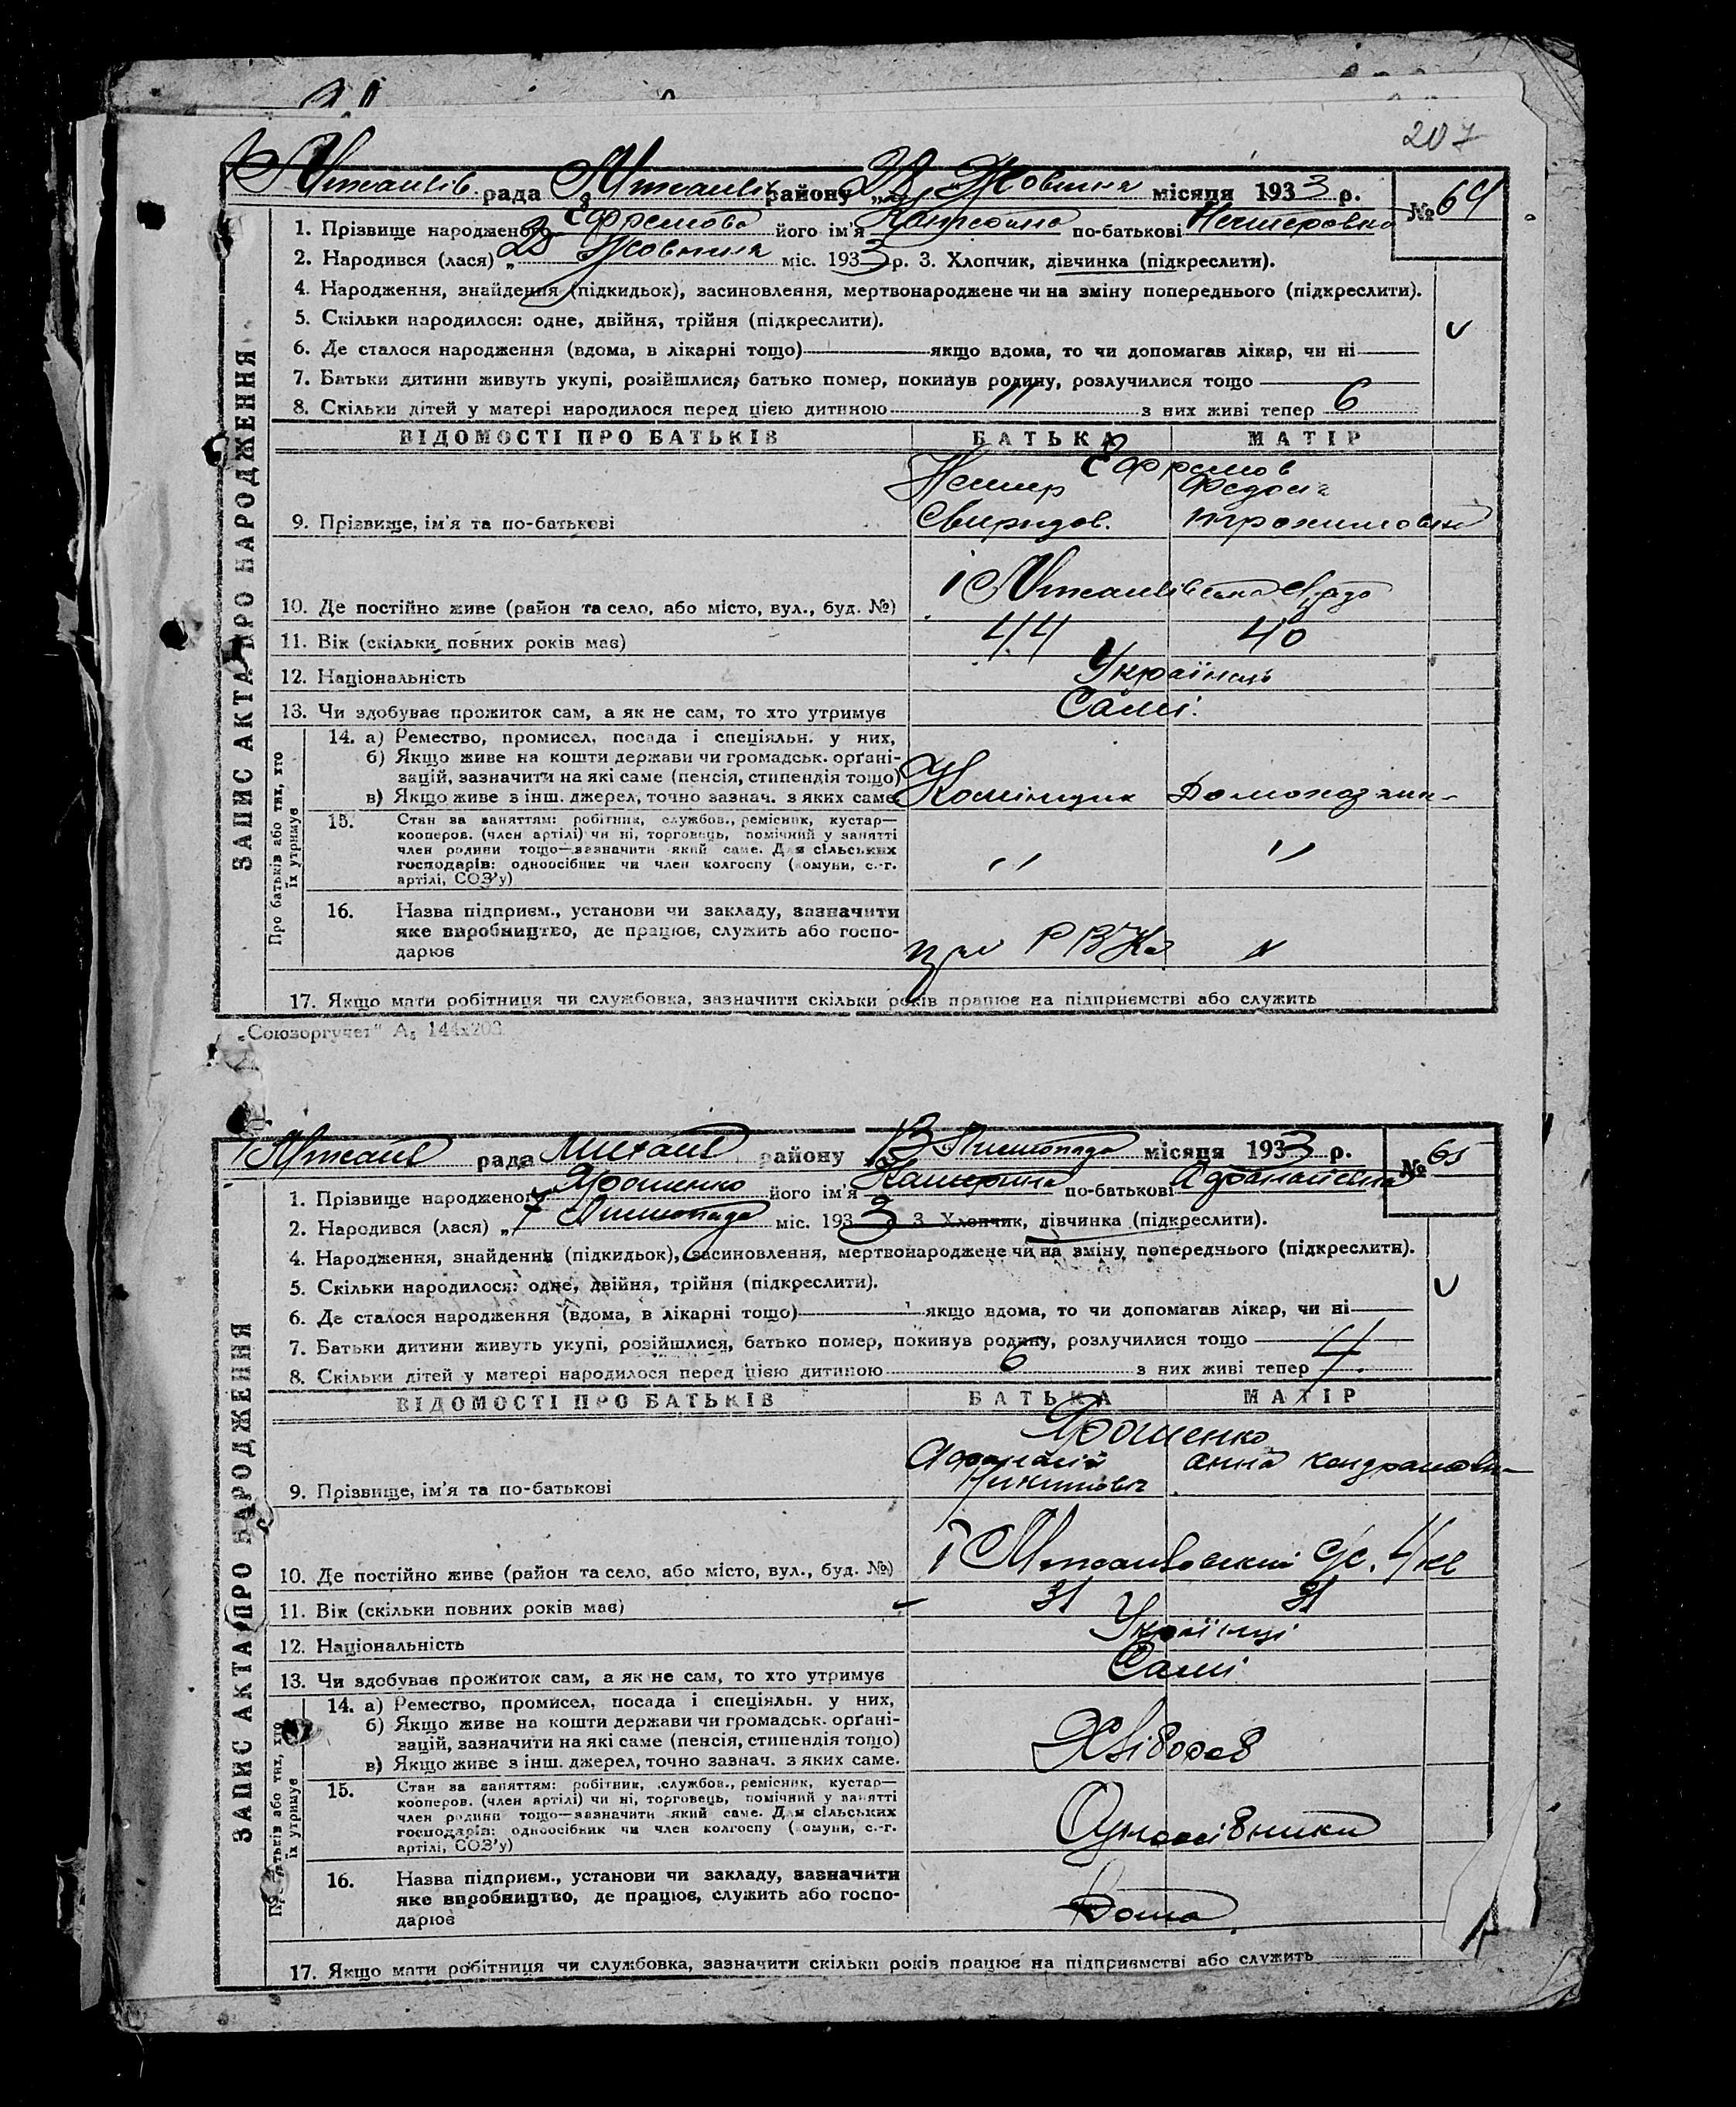 207
рада району „ Жовтня місяця 1933 р. № 64
1. Прізвище народженого Єфремова його ім'я по-батькові
2. Народився (лася) „ Жовтня міс. 1933 р. 3. Хлопчик, дівчинка (підкреслити).
4. Народження, знайдення (підкидьок), засиновлення, мертвонароджене чи на зміну попереднього (підкреслити).
5. Скільки народилося: одне, двійня, трійня (підкреслити).
6. Де сталося народження (вдома, в лікарні тощо) якщо вдома, то чи допомагав лікар, чи ні
7. Батьки дитини живуть укупі, розійшлися, батько помер, покинув родину, розлучилися тощо
8. Скільки дітей у матері народилося перед цією дитиною 11 з них живі тепер 6
ЗАПИС АКТА ПРО НАРОДЖЕННЯ
ВІДОМОСТІ ПРО БАТЬКІВ БАТЬКА МАТІР
Єфремов
Свиридов. Трохимовна
9. Прізвище, ім'я та по-батькові
10. Де постійно живе (район та село, або місто, вул., буд. №)
11. Вік (скільки повних років має) 44 40
12. Національність Українець
13. Чи здобуває прожиток сам, а як не сам, то хто утримує Самі.
Про батьків або тих, хто їх утримує
14. а) Ремество, промисел, посада і спеціяльн. у них,
б) Якщо живе на кошти держави чи громадськ. орґані-
зацій, зазначити на які саме (пенсія, стипендія тощо)
в) Якщо живе з інш. джерел, точно зазнач. з яких саме
15. Стан за заняттям: робітник, службов., ремісник, кустар—
кооперов. (член артілі) чи ні, торговець, помічний у занятті
член родини тощо—зазначити який саме. Для сільських
господарів: одноосібник чи член колгоспу (комуни, с.-г.
артілі, СОЗ'у) ,, ,,
16. Назва підприєм., установи чи закладу, зазначити
яке виробництво, де працює, служить або госпо-
дарює при РВКа
17. Якщо мати робітниця чи службовка, зазначити скільки років працює на підприємстві або служить
„Союзоргучет" А₅ 144x203
рада району 13 Листопада місяця 1933 р. № 65
1. Прізвище народженого Ярошенко його ім'я Катерина по-батькові
2. Народився (лася) „ 7 Листопада міс. 1933 3. Хлопчик, дівчинка (підкреслити).
4. Народження, знайдення (підкидьок), засиновлення, мертвонароджене чи на зміну попереднього (підкреслити).
5. Скільки народилося: одне, двійня, трійня (підкреслити).
6. Де сталося народження (вдома, в лікарні тощо) якщо вдома, то чи допомагав лікар, чи ні
7. Батьки дитини живуть укупі, розійшлися, батько помер, покинув родину, розлучилися тощо
8. Скільки дітей у матері народилося перед цією дитиною 6 з них живі тепер 4
ЗАПИС АКТА ПРО НАРОДЖЕННЯ
ВІДОМОСТІ ПРО БАТЬКІВ БАТЬКА МАТІР
Ярошенко
Анна
9. Прізвище, ім'я та по-батькові Никитович
10. Де постійно живе (район та село, або місто, вул., буд. №)
11. Вік (скільки повних років має) 31 31
12. Національність Українці
13. Чи здобуває прожиток сам, а як не сам, то хто утримує Самі
Про батьків або тих, хто їх утримує
14. а) Ремество, промисел, посада і спеціяльн. у них,
б) Якщо живе на кошти держави чи громадськ. орґані-
зацій, зазначити на які саме (пенсія, стипендія тощо)
в) Якщо живе з інш. джерел, точно зазнач. з яких саме. Хлібороб
15. Стан за заняттям: робітник, службов., ремісник, кустар—
кооперов. (член артілі) чи ні, торговець, помічний у занятті
член родини тощо—зазначити який саме. Для сільських
господарів: одноосібник чи член колгоспу (комуни, с.-г.
артілі, СОЗ'у) Одноосібники
16. Назва підприєм., установи чи закладу, зазначити
яке виробництво, де працює, служить або госпо-
дарює Дома
17. Якщо мати робітниця чи службовка, зазначити скільки років працює на підприємстві або служить